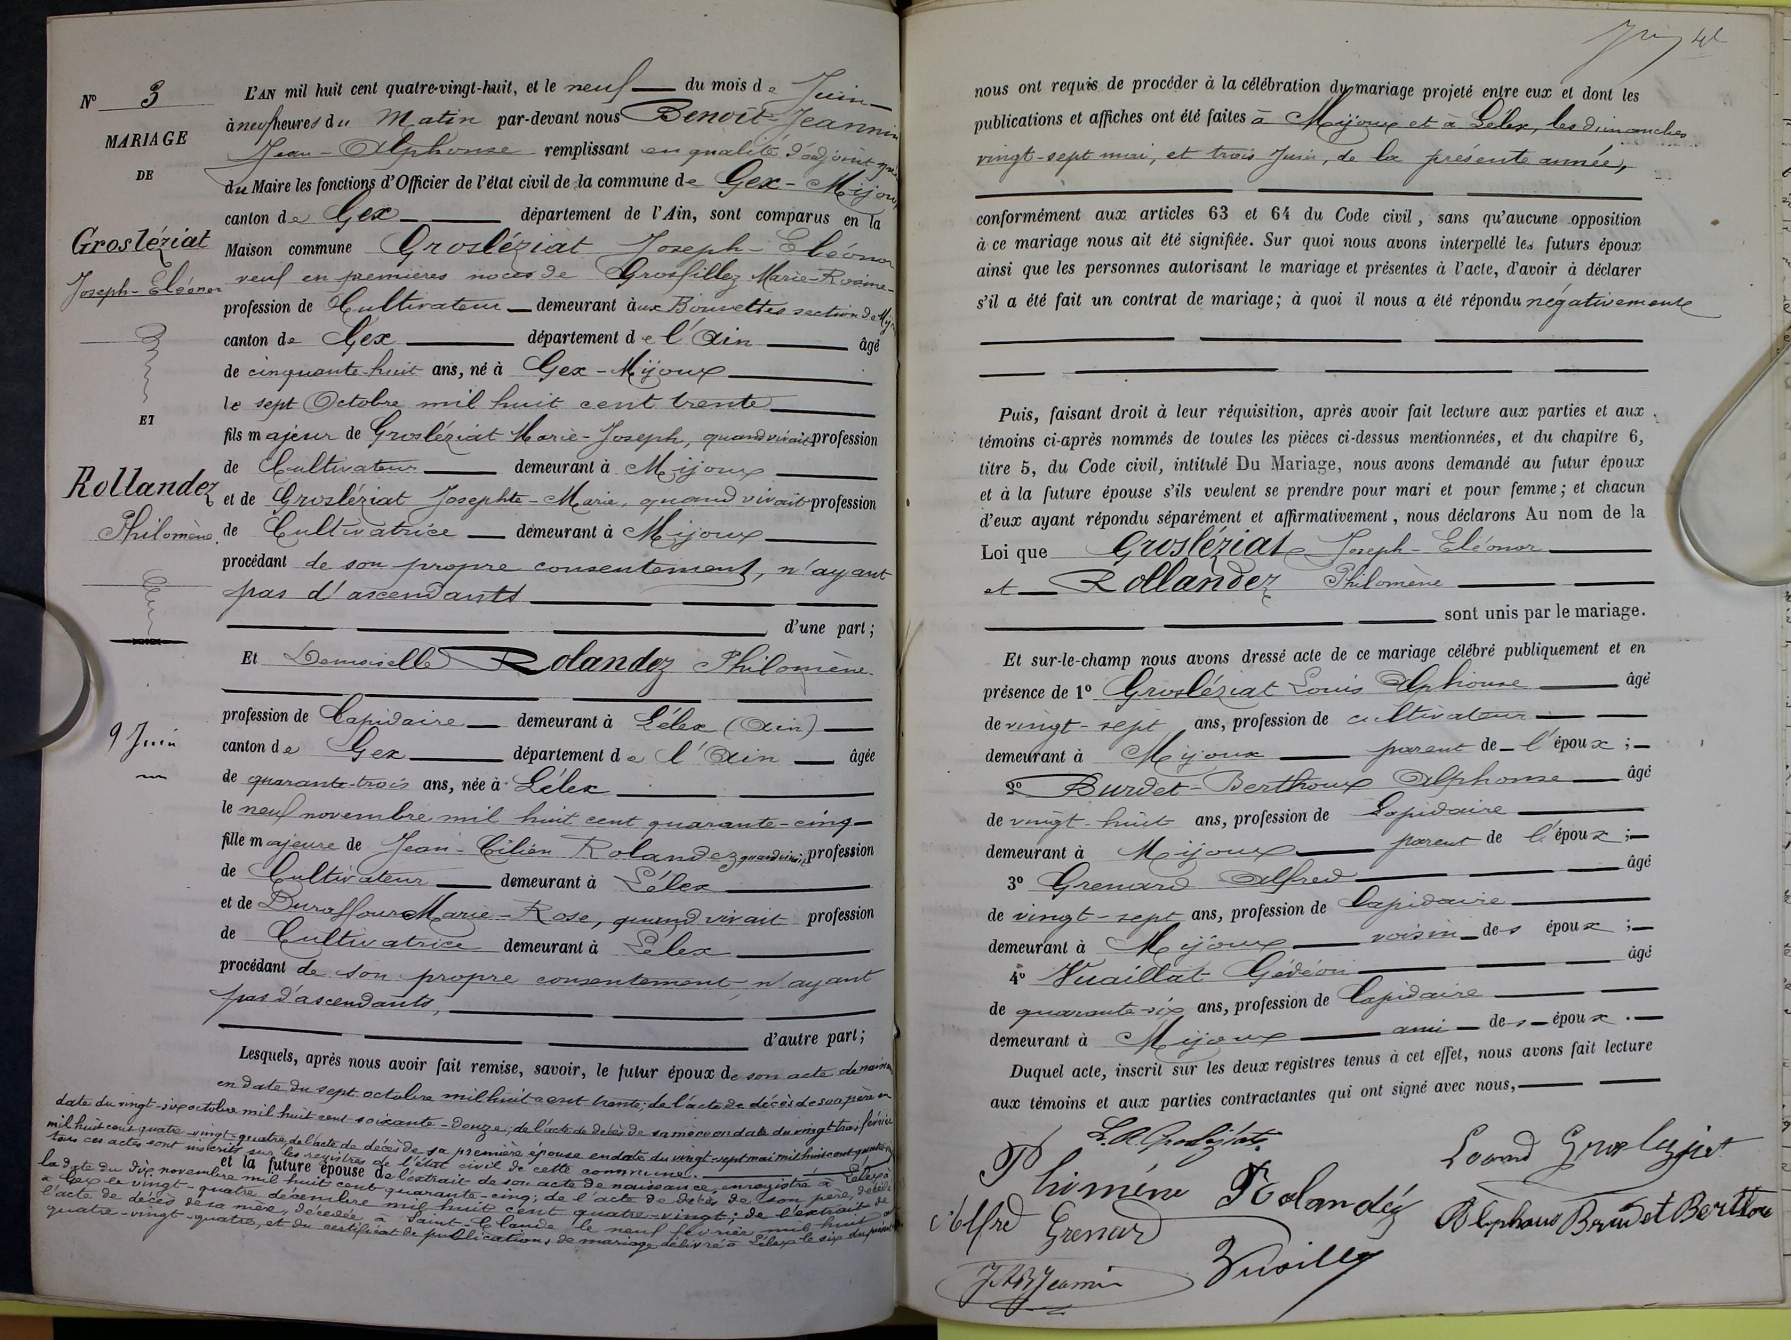 N° 3
MARIAGE
DE
Grosléziat
Joseph-Eléonor
ET
Rollandez
Philomène.
9 Juin
L'AN mil huit cent quatre-vingt-huit, et le neuf du mois de Juin
à neuf heures du Matin par-devant nous Benoit-Jeannin
Jean-Alphonse remplissant en qualité d'adjoint
du Maire les fonctions d'Officier de l'état civil de la commune de Gex-Mijoux
canton de Gex département de l'Ain, sont comparus en la
Maison commune Grosléziat Joseph-Eléonor
veuf en premières noces de Grosfillez Marie-Rosine
profession de Cultivateur demeurant aux Bouvettes section de
canton de Gex département de l'Ain âgé
de cinquante-huit ans, né à Gex-Mijoux
le sept Octobre mil huit cent trente
fils majeur de Grosléziat Marie-Joseph, quand vivait profession
de Cultivateur demeurant à Mijoux
et de Grosléziat Josephte-Marie, quand vivait profession
de Cultivatrice demeurant à Mijoux
procédant de son propre consentement, n'ayant
pas d'ascendants
d'une part;
Et Demoiselle Rolandez Philomène.
profession de Lapidaire demeurant à Lélex (Ain)
canton de Gex département de l'Ain âgée
de quarante-trois ans, née à Lélex
le neuf novembre mil huit cent quarante-cinq
fille majeure de Jean-Cilien Rolandez quand vivait profession
de Cultivateur demeurant à Lélex
et de Duraffour Marie-Rose, quand vivait profession
de Cultivatrice demeurant à Lélex
procédant de son propre consentement n'ayant
pas d'ascendants,
d'autre part;
Lesquels, après nous avoir fait remise, savoir, le futur époux de son acte de
en date du sept octobre mil huit cent trente; de l'acte de décès de son père en
date du vingt-six octobre mil huit cent soixante-douze; de l'acte de décès de sa mère en date du vingt trois février
mil huit cent quatre-vingt-quatre, de l'acte de décès de sa première épouse en date du vingt-sept mai mil huit cent
tous ces actes sont inscrits sur les registres de l'état civil de cette commune.
et la future épouse de l'extrait de son acte de naissance, enregistré à Lélex à
la date du dix novembre mil huit cent quarante-cinq; de l'acte de décès de son père, décédé
à Gex le vingt-quatre décembre mil huit cent quatre-vingt; de l'extrait de
l'acte de décès de sa mère, décédée à Saint-Claude le neuf février mil huit
quatre-vingt-quatre, et du certificat de publications de mariage délivré à Lélex le six du
nous ont requis de procéder à la célébration du mariage projeté entre eux et dont les
publications et affiches ont été faites à Mijoux et à Lélex, les dimanches
vingt-sept mai, et trois Juin, de la présente année,
conformément aux articles 63 et 64 du Code civil, sans qu'aucune opposition
à ce mariage nous ait été signifiée. Sur quoi nous avons interpellé les futurs époux
ainsi que les personnes autorisant le mariage et présentes à l'acte, d'avoir à déclarer
s'il a été fait un contrat de mariage; à quoi il nous a été répondu négativement
Puis, faisant droit à leur réquisition, après avoir fait lecture aux parties et aux
témoins ci-après nommés de toutes les pièces ci-dessus mentionnées, et du chapitre 6,
titre 5, du Code civil, intitulé Du Mariage, nous avons demandé au futur époux
et à la future épouse s'ils veulent se prendre pour mari et pour femme; et chacun
d'eux ayant répondu séparément et affirmativement, nous déclarons Au nom de la
Loi que Grosléziat Joseph-Eléonor
et Rollandez Philomène
sont unis par le mariage.
Et sur-le-champ nous avons dressé acte de ce mariage célébré publiquement et en
présence de 1° Grosléziat Louis Alphonse âgé
de vingt-sept ans, profession de cultivateur
demeurant à Mijoux parent de l'époux;
2° Burdet-Berthoux Alphonse âgé
de vingt-huit ans, profession de Lapidaire
demeurant à Mijoux parent de l'époux;
3° Grenard Alfred âgé
de vingt-sept ans, profession de Lapidaire
demeurant à Mijoux voisin des époux;
4° Vuaillat Gédéon âgé
de quarante-six ans, profession de Lapidaire
demeurant à Mijoux ami des époux.
Duquel acte, inscrit sur les deux registres tenus à cet effet, nous avons fait lecture
aux témoins et aux parties contractantes qui ont signé avec nous,
Phiméne Rolandéz
Alfred Grenard